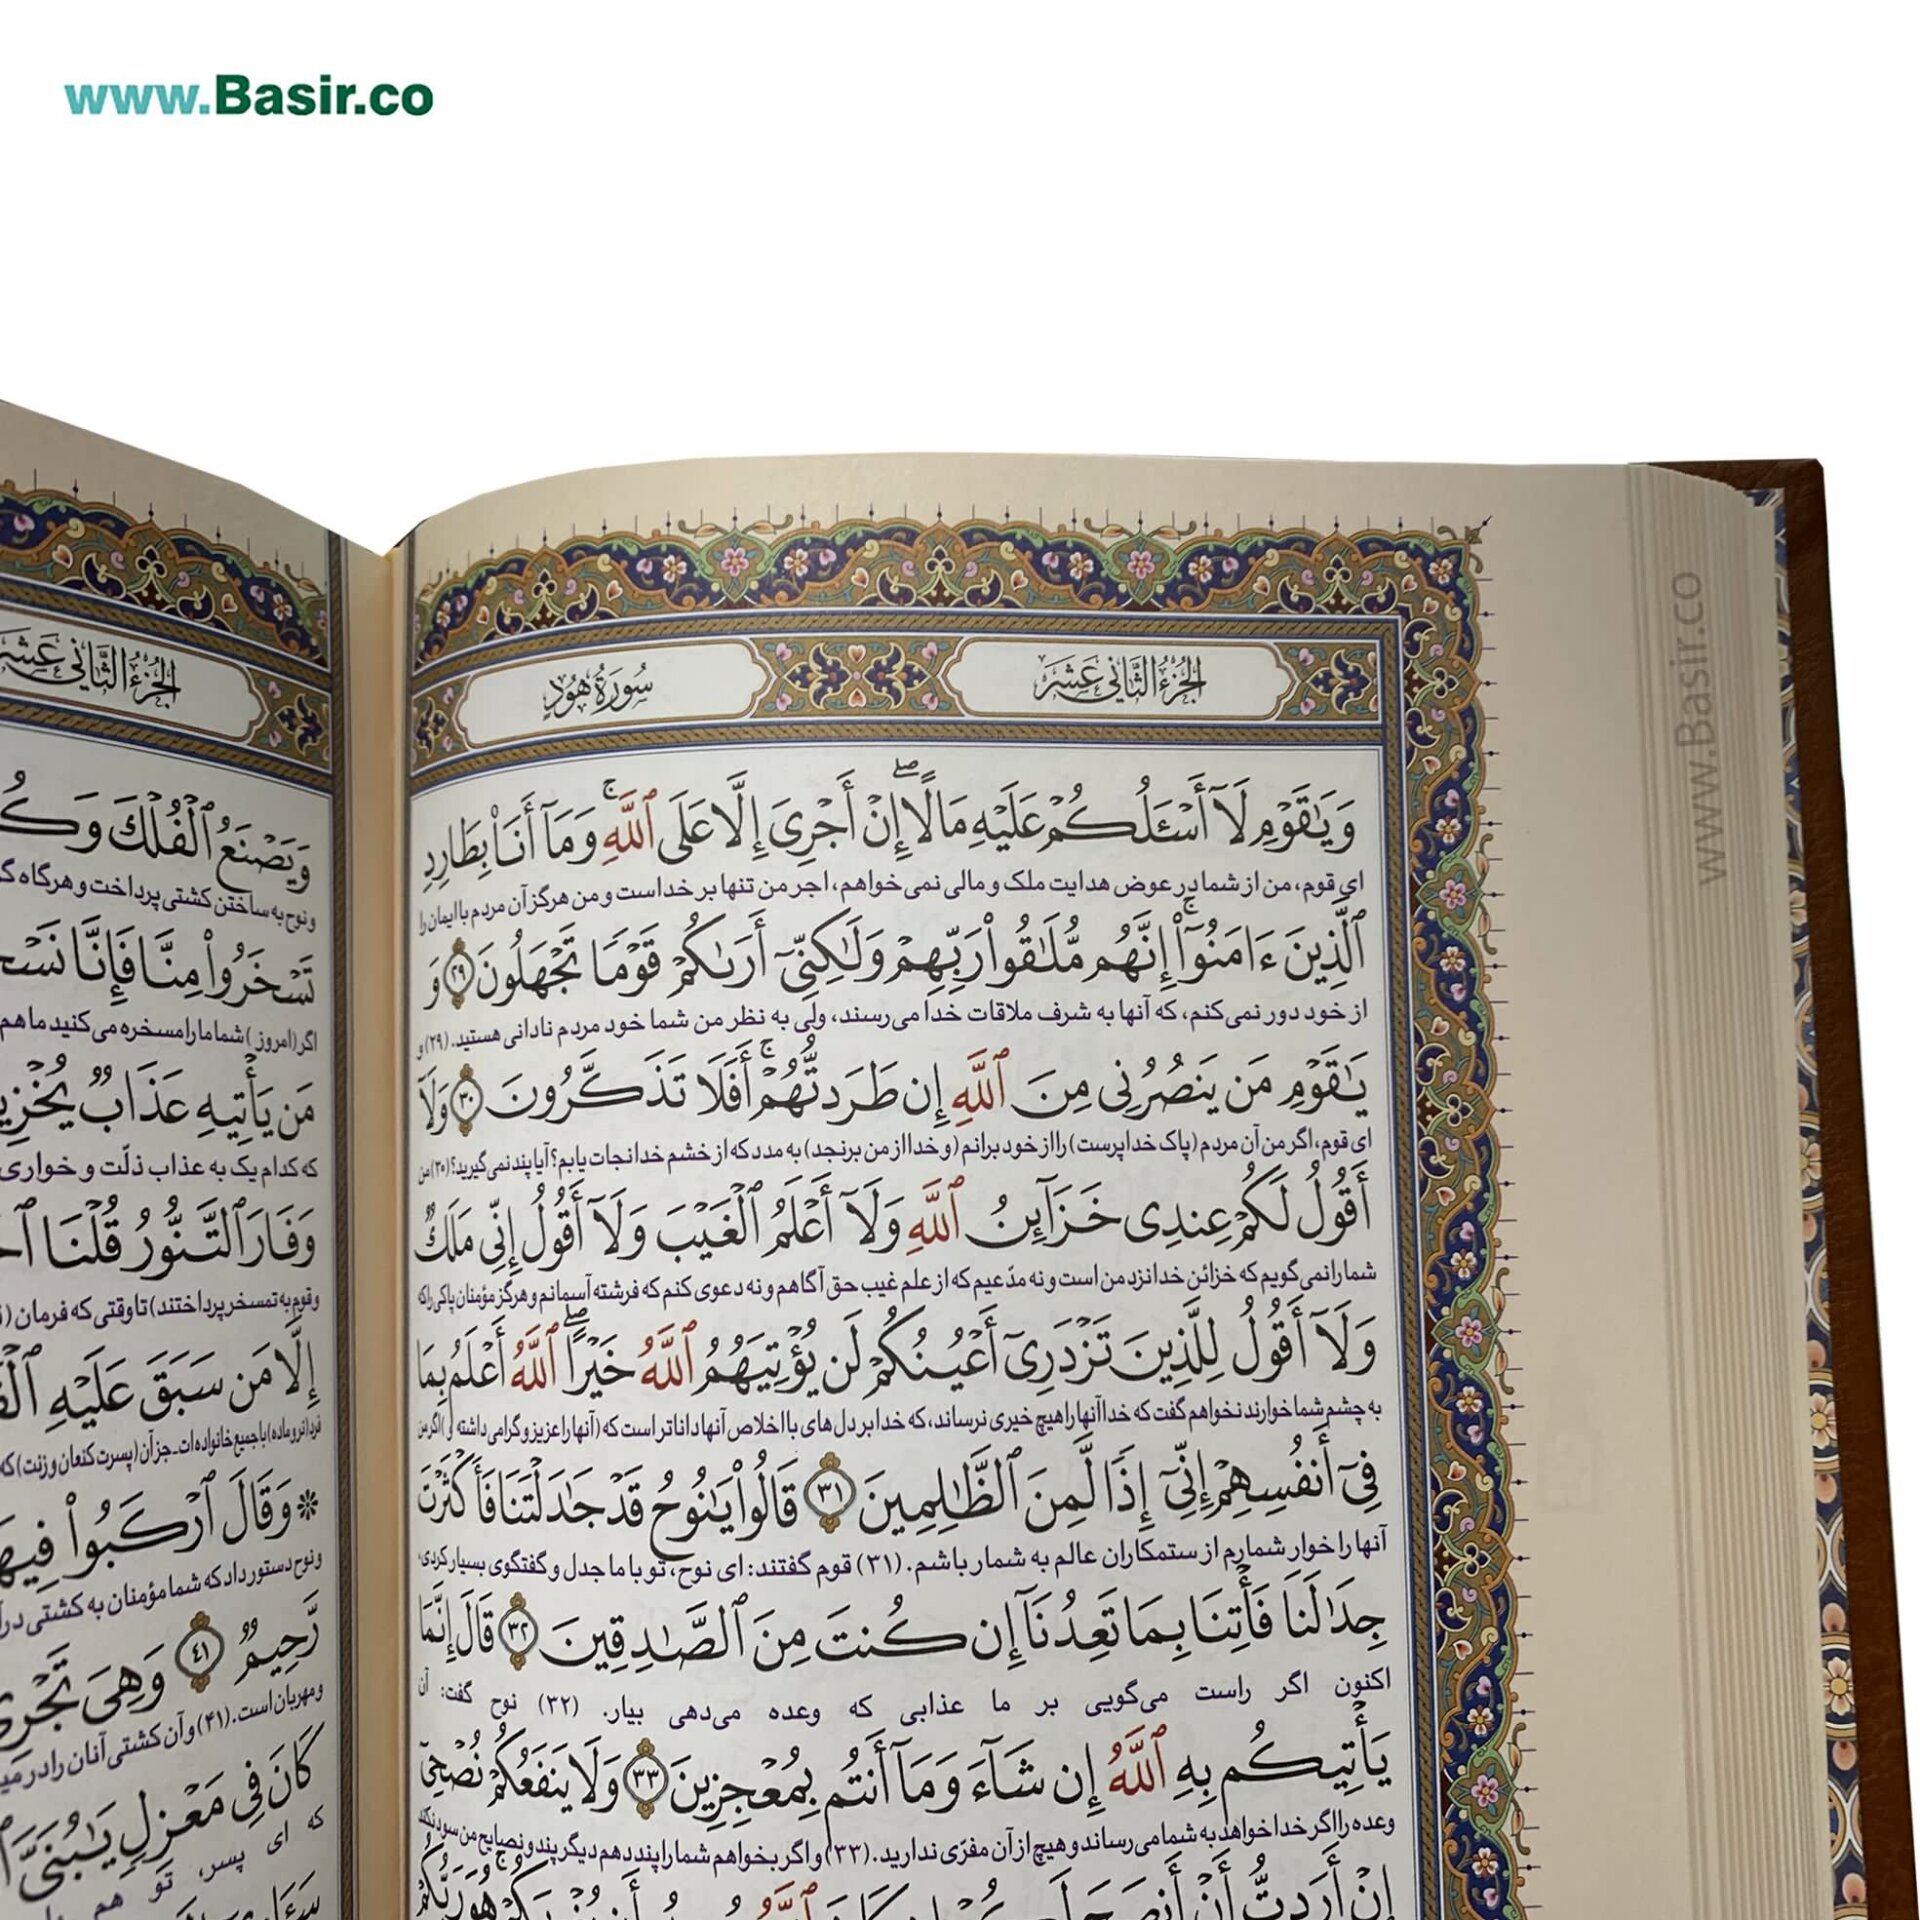 www.Basir.co
الجزء الثانی عشر
سورة هود
وَيَٰقَوْمِ لَآ أَسْـَٔلُكُمْ عَلَيْهِ مَالًا ۖ إِنْ أَجْرِىَ إِلَّا عَلَى ٱللَّهِ ۚ وَمَآ أَنَا۠ بِطَارِدِ
ای قوم، من از شما در عوض هدایت ملک و مالی نمی‌خواهم، اجر من تنها بر خداست و من هرگز آن مردم با ایمان را
ٱلَّذِينَ ءَامَنُوٓا۟ ۚ إِنَّهُم مُّلَٰقُوا۟ رَبِّهِمْ وَلَٰكِنِّىٓ أَرَىٰكُمْ قَوْمًا تَجْهَلُونَ ﴿٢٩﴾ وَ
از خود دور نمی‌کنم، که آنها به شرف ملاقات خدا می‌رسند، ولی به نظر من شما خود مردم نادانی هستید. (۲۹) و
يَٰقَوْمِ مَن يَنصُرُنِى مِنَ ٱللَّهِ إِن طَرَدتُّهُمْ ۚ أَفَلَا تَذَكَّرُونَ ﴿٣٠﴾ وَلَآ
ای قوم، اگر من آن مردم (پاک خداپرست) را از خود برانم (و خدا از من برنجد) به مدد که از خشم خدا نجات یابم؟ آیا پند نمی‌گیرید؟ (۳۰) من
أَقُولُ لَكُمْ عِندِى خَزَآئِنُ ٱللَّهِ وَلَآ أَعْلَمُ ٱلْغَيْبَ وَلَآ أَقُولُ إِنِّى مَلَكٌ
شما را نمی‌گویم که خزائن خدا نزد من است و نه مدّعیم که از علم غیب حق آگاهم و نه دعوی کنم که فرشته آسمانم و هرگز مؤمنان پاکی را که
وَلَآ أَقُولُ لِلَّذِينَ تَزْدَرِىٓ أَعْيُنُكُمْ لَن يُؤْتِيَهُمُ ٱللَّهُ خَيْرًا ۖ ٱللَّهُ أَعْلَمُ بِمَا
به چشم شما خوارند نخواهم گفت که خدا آنها را هیچ خیری نرساند، که خدا بر دل‌های با اخلاص آنها داناتر است که (آنها را عزیز و گرامی داشته و) اگر من
فِىٓ أَنفُسِهِمْ إِنِّىٓ إِذًا لَّمِنَ ٱلظَّٰلِمِينَ ﴿٣١﴾ قَالُوا۟ يَٰنُوحُ قَدْ جَٰدَلْتَنَا فَأَكْثَرْتَ
آنها را خوار شمارم از ستمکاران عالم به شمار باشم. (۳۱) قوم گفتند: ای نوح، تو با ما جدل و گفتگوی بسیار کردی،
جِدَٰلَنَا فَأْتِنَا بِمَا تَعِدُنَآ إِن كُنتَ مِنَ ٱلصَّٰدِقِينَ ﴿٣٢﴾ قَالَ إِنَّمَا
اکنون اگر راست می‌گویی بر ما عذابی که وعده می‌دهی بیار. (۳۲) نوح گفت: آن
يَأْتِيكُم بِهِ ٱللَّهُ إِن شَآءَ وَمَآ أَنتُم بِمُعْجِزِينَ ﴿٣٣﴾ وَلَا يَنفَعُكُمْ نُصْحِىٓ
وعده را اگر خدا خواهد به شما می‌رساند و هیچ از آن مفرّی ندارید. (۳۳) و اگر بخواهم شما را پند دهم دیگر پند و نصایح من سود نکند
إِنْ أَرَدتُّ أَنْ أَنصَحَ
الجزء الثانی عشر
وَيَصْنَعُ ٱلْفُلْكَ وَكُ
و نوح به ساختن کشتی پرداخت و هرگاه
تَسْخَرُوا۟ مِنَّا فَإِنَّا نَسْخَ
اگر (امروز) شما ما را مسخره می‌کنید ما هم
مَن يَأْتِيهِ عَذَابٌ يُخْزِي
که کدام یک به عذاب ذلّت و خواری
وَفَارَ ٱلتَّنُّورُ قُلْنَا
و قوم به تمسخر پرداختند) تا وقتی که فرمان
إِلَّا مَن سَبَقَ عَلَيْهِ
فرد (نر و ماده) با جمیع خانواده‌ات ـ جز آن (پسرت کنعان و زنت) که
۞ وَقَالَ ٱرْكَبُوا۟ فِيهَ
و نوح دستور داد که شما مؤمنان به کشتی
رَّحِيمٌ ﴿٤١﴾ وَهِىَ تَجْرِى
و مهربان است. (۴۱) و آن کشتی آنان را در
كَانَ فِى مَعْزِلٍ يَٰبُنَىَّ
که ای پسر، تو هم
www.Basir.co